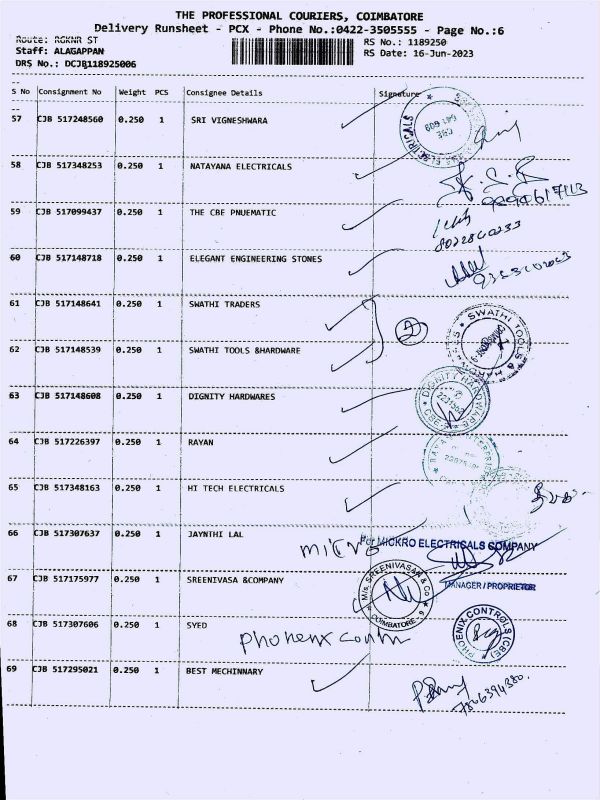 THE PROFESSIONAL COURIERS, COIMBATORE
Delivery Runsheet - PCX - Phone No.:0422-3505555 - Page No.:6
Route: RGKNR ST
RS No.: 1189250
Staff: ALAGAPPAN
RS Date: 16-Jun-2023
DRS No.: DCJB118925006
S No Consignment No Weight PCS Consignee Details Signature
57 CJB 517248560 0.250 1 SRI VIGNESHWARA
58 CJB 517348253 0.250 1 NATAYANA ELECTRICALS
59 CJB 517099437 0.250 1 THE CBE PNUEMATIC
60 CJB 517148718 0.250 1 ELEGANT ENGINEERING STONES
61 CJB 517148641 0.250 1 SWATHI TRADERS
2
62 CJB 517148539 0.250 1 SWATHI TOOLS &HARDWARE
SWATHI TOOLS & HARDWARES
63 CJB 517148608 0.250 1 DIGNITY HARDWARES
DIGNITY HARDWARE CBE
64 CJB 517226397 0.250 1 RAYAN
65 CJB 517348163 0.250 1 HI TECH ELECTRICALS
66 CJB 517307637 0.250 1 JAYNTHI LAL
micro
For MICKRO ELECTRICALS COMPANY
MANAGER / PROPRIETOR
67 CJB 517175977 0.250 1 SREENIVASA &COMPANY
M/s. SREENIVASAN & Co COIMBATORE - 6
68 CJB 517307606 0.250 1 SYED
PHOENIX CONTROLS (CBE)
69 CJB 517295021 0.250 1 BEST MECHINNARY
7806394380